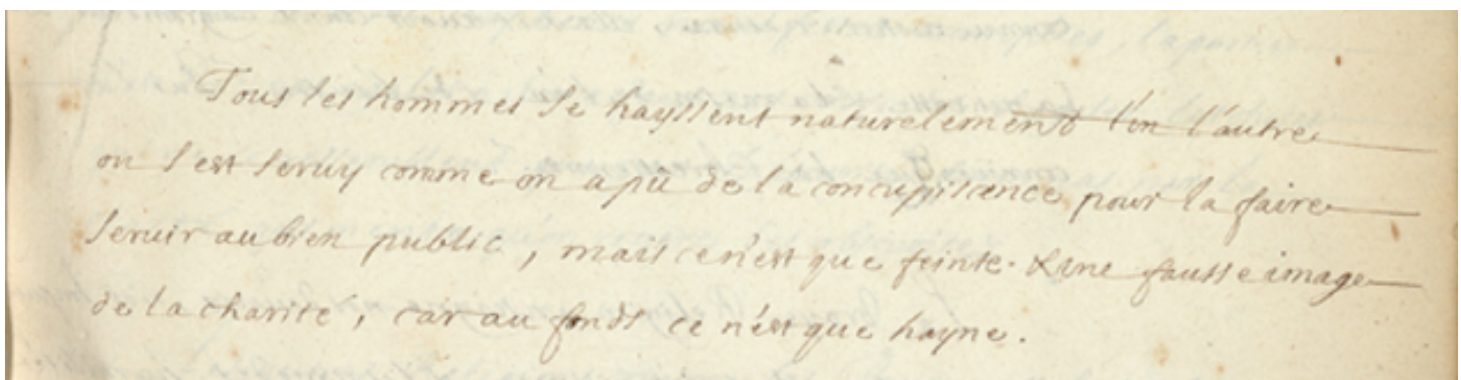 Tous les hommes se hayssent naturelement l'un l'autre
on s'est seruy comme on a pû de la concupiscence pour la faire
seruir au bien public, mais ce n'est que feinte. & une fausse image
de la charité, car au fonds ce n'est que hayne.